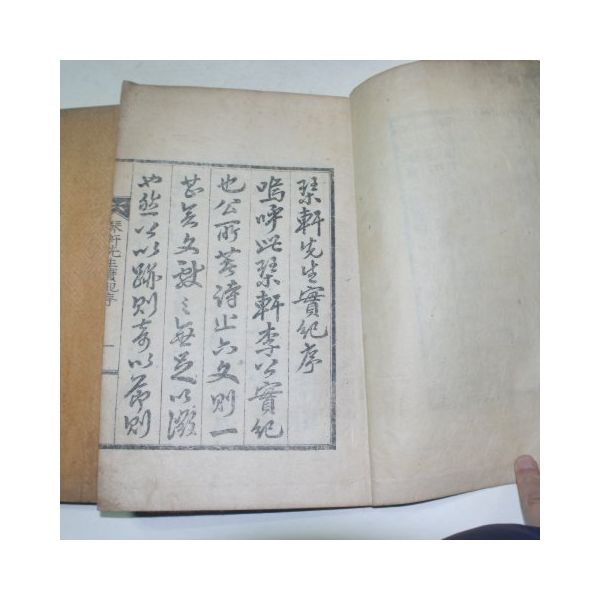 琹軒先生實紀序
嗚呼此琹軒李公實紀
也公所著詩止六文則一
甚矣文獻之無足以徵
也然公以跡則奇以節則
琹軒先生實紀序
一